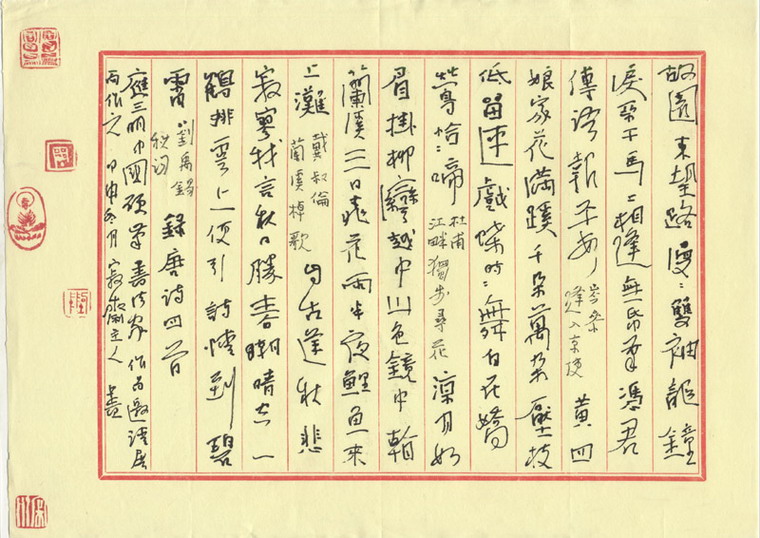 故園東望路漫〻雙袖龍鐘
淚不干馬上相逢無紙筆憑君
傳語報平安 岑參 逢入京使 黃四
娘家花滿蹊千朵萬朵壓枝
低留連戲蝶時〻舞自在嬌
鶯恰〻啼 杜甫 江畔獨步尋花 涼月如
眉掛柳灣越中山色鏡中看
蘭溪三日桃花雨半夜鯉魚來
上灘 戴叔倫 蘭溪棹歌 自古逢秋悲
寂寥我言秋日勝春朝晴空一
鶴排雲上便引詩情到碧
霄 劉禹錫 秋詞 錄唐詩四首
應三明中國硬筆書法家作品邀請展
而作之 甲申冬月 寂齋主人 書